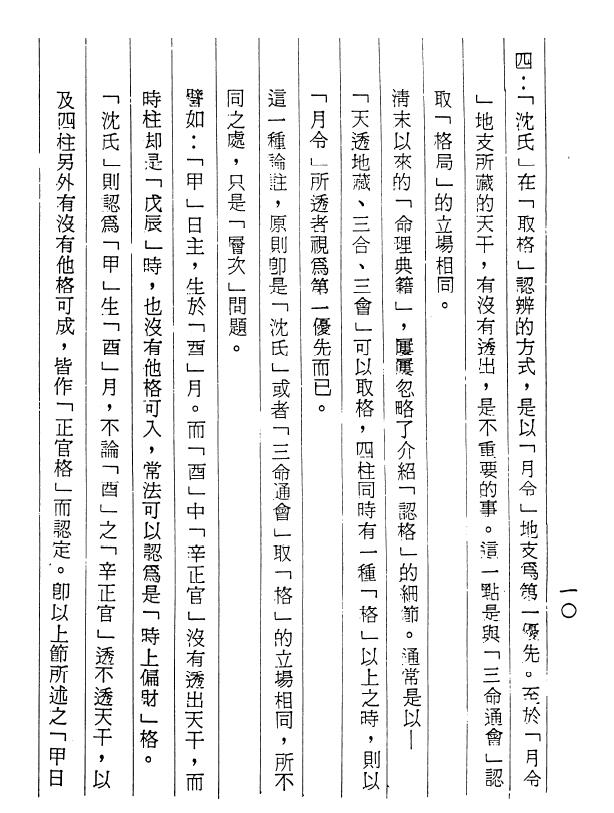 四：「沈氏」在「取格」認辨的方式，是以「月令」地支爲第一優先。至於「月令
」地支所藏的天干，有沒有透出，是不重要的事。這一點是與「三命通會」認
取「格局」的立場相同。
淸末以來的「命理典籍」，屢屢忽略了介紹「認格」的細節。通常是以—
「天透地藏、三合、三會」可以取格，四柱同時有一種「格」以上之時，則以
「月令」所透者視爲第一優先而已。
這一種論註，原則卽是「沈氏」或者「三命通會」取「格」的立場相同，所不
同之處，只是「層次」問題。
譬如：「甲」日主，生於「酉」月。而「酉」中「辛正官」沒有透出天干，而
時柱却是「戊辰」時，也沒有他格可入，常法可以認爲是「時上偏財」格。
「沈氏」則認爲「甲」生「酉」月，不論「酉」之「辛正官」透不透天干，以
及四柱另外有沒有他格可成，皆作「正官格」而認定。卽以上節所述之「甲日
一〇